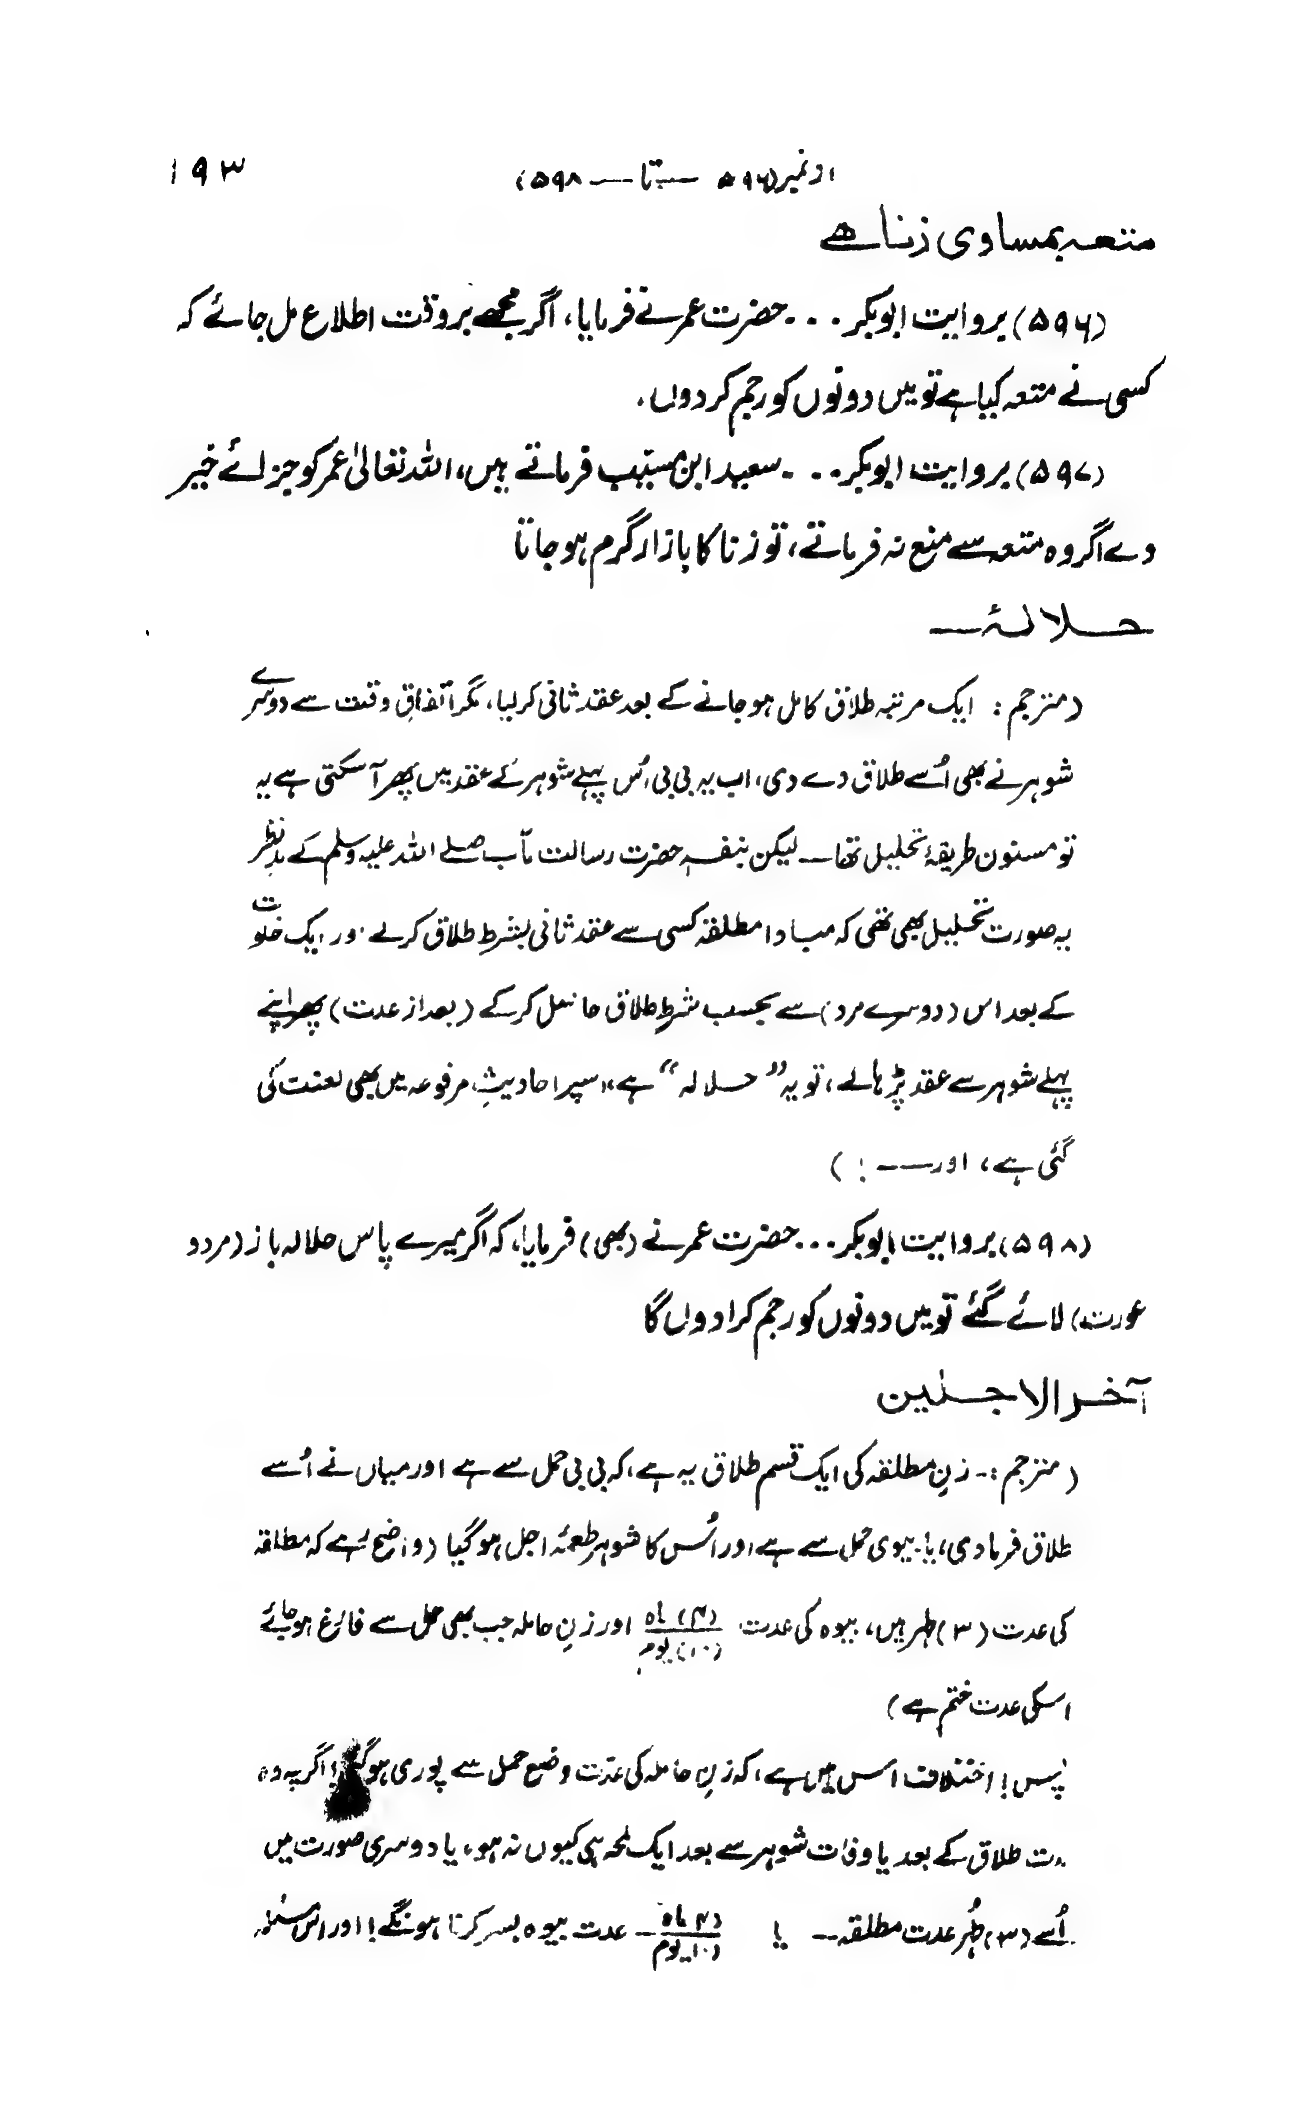 از نمبر (۵۹۶ — تا — ۵۹۸) ۱۹۳
متعہ بمساوی زنا ھے
(۵۹۶) بروایت ابوبکر ... حضرت عمر نے فرمایا، اگر مجھے بروقت اطلاع مل جائے کہ
کسی نے متعہ کیا ہے تو میں دونوں کو رجم کردوں۔
(۵۹۷) بروایت ابوبکر ... سعید ابن مسیب فرماتے ہیں، اللہ تعالیٰ عمر کو جزائے خیر
دے اگر وہ متعہ سے منع نہ فرماتے، تو زنا کا بازار گرم ہو جاتا
حلالۂ—
(مترجم: ایک مرتبہ طلاق کامل ہو جانے کے بعد عقد ثانی کرلیا، مگر اتفاقِ وقت سے دوسرے
شوہر نے بھی اُسے طلاق دے دی، اب یہ بی بی اُس پہلے شوہر کے عقد میں پھر آ سکتی ہے یہ
تو مسنون طریقۂ تحلیل تھا— لیکن بنفسہٖ حضرت رسالت مآب صلے اللہ علیہ وسلم کے مدِ نظر
یہ صورت تحلیل بھی تھی کہ مبادا مطلقہ کسی سے عقد ثانی بشرط طلاق کرلے اور ایک خلوت
کے بعد اس (دوسرے مرد) سے بحسب شرطِ طلاق حاصل کرکے (بعد از عدت) پھر اپنے
پہلے شوہر سے عقد پڑھالے، تو یہ "حلالہ" ہے، اسپر احادیثِ مرفوعہ میں بھی لعنت کی
گئی ہے، اور —— !)
(۵۹۸) بروایت ابوبکر ... حضرت عمر نے (بھی) فرمایا، کہ اگر میرے پاس حلالہ باز (مرد و
عورت) لائے گئے تو میں دونوں کو رجم کرا دوں گا
آخر الاجلین
(مترجم:- زنِ مطلقہ کی ایک قسم طلاق یہ ہے، کہ بی بی حمل سے ہے اور میاں نے اُسے
طلاق فرمادی، یا۔ بیوی حمل سے ہے اور اُس کا شوہر طعمۂ اجل ہوگیا (واضح رہے کہ مطلقہ
کی عدت (۳) طہر ہیں، بیوہ کی عدت (۴) ماہ (۱۰) یوم اور زنِ حاملہ جب بھی حمل سے فارغ ہو جائے
اسکی عدت ختم ہے)
پس! اختلاف اس میں ہے، کہ زنِ حاملہ کی عدّت وضع حمل سے پوری ہوگی! اگرچہ وہ
طلاق کے بعد یا وفات شوہر سے بعد ایک لمحہ ہی کیوں نہ ہو، یا دوسری صورت میں
اُسے (۳) طُہر عدت مطلقہ— یا (۴) ماہ (۱۰) یوم— عدت بیوہ بسر کرنا ہونگے! اور اس